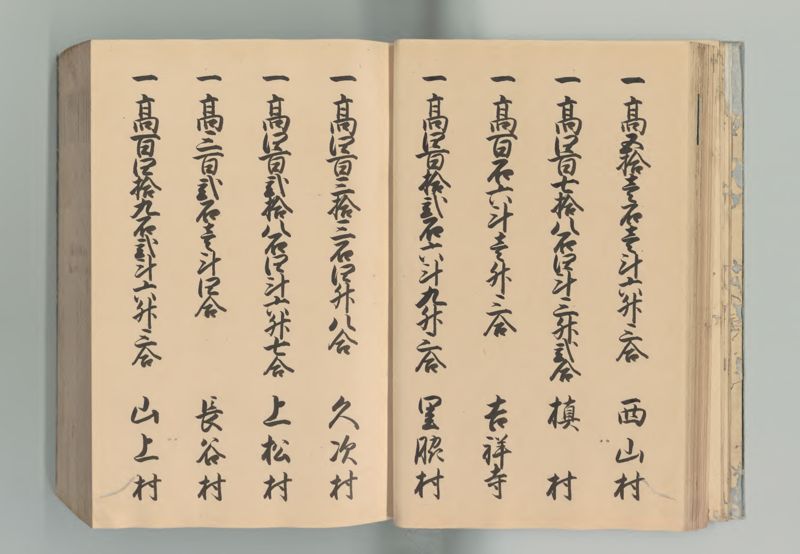 一 高五拾壱石壱斗六升三合 西山村
一 高四百七拾八石四斗三升弐合 槙村
一 高百石六斗壱升三合 吉祥寺
一 高四百拾弐石六斗九升三合 黒脇村
一 高四百三拾三石四升八合 久次村
一 高四百弐拾八石四斗六升七合 上松村
一 高三百弐石壱斗四合 長谷村
一 高百四拾九石弐斗六升三合 山上村